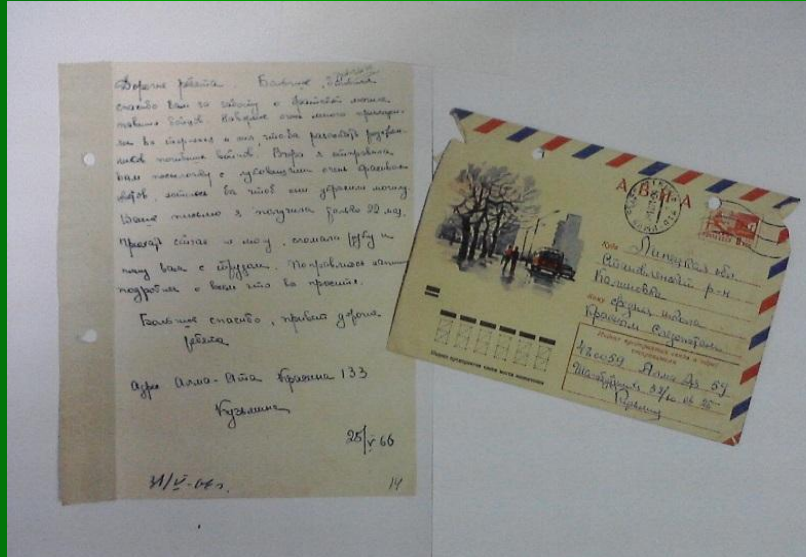 Дорогие ребята. Большое
спасибо вам за заботу о братской могиле
павших бойцов. очень много
разыскать родствен-
ников погибших бойцов. Вчера я отправила
вам посылочку с луковицами очень красивых
цветов, хотелось бы чтоб они украсили могилу
Ваше письмо я получила только 22 мая.
сейчас не могу, сломала руку и
пишу вам с трудом. Поправлюсь напишу
подробно о всем что вы просите.
Большое спасибо, привет дорогие
ребята
Адрес Алма-Ата Красина 133
Кузьмина
25/V 66
31/V-66г.
14
АВИА
Куда Липецкая обл.
р-н
средняя школа
Кому Красным Следопытам
Индекс предприятия связи и адрес
отправителя
480059 Алма-Ата 59
Индекс предприятия связи места назначения